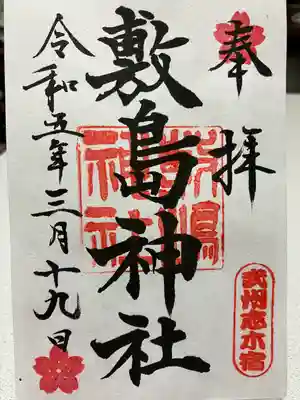 奉拝
敷島神社
令和五年三月十九日
敷嶋神社
武州志木宿